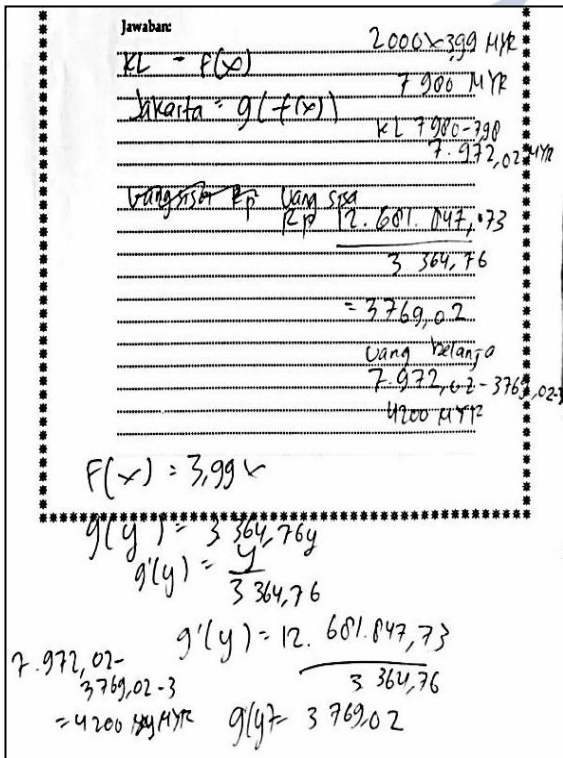 Jawaban:
2000 x 3,99 MYR
KL = F(x)
7 980 MYR
Jakarta = g(f(x))
KL 7980-798
7.972,02 MYR
Uang sisa Rp Uang sisa
Rp 12.681.847,73
3 364,76
= 3769,02
Uang belanja
7.972,02 - 3769,02-3
4200 MYR
F(x) = 3,99x
g(y) = 3 364,76y
g'(y) = y
3 364,76
g'(y) = 12. 681.847,73
3 364,76
7.972,02-
3769,02-3
= 4200 MYR
g(y) = 3 769,02